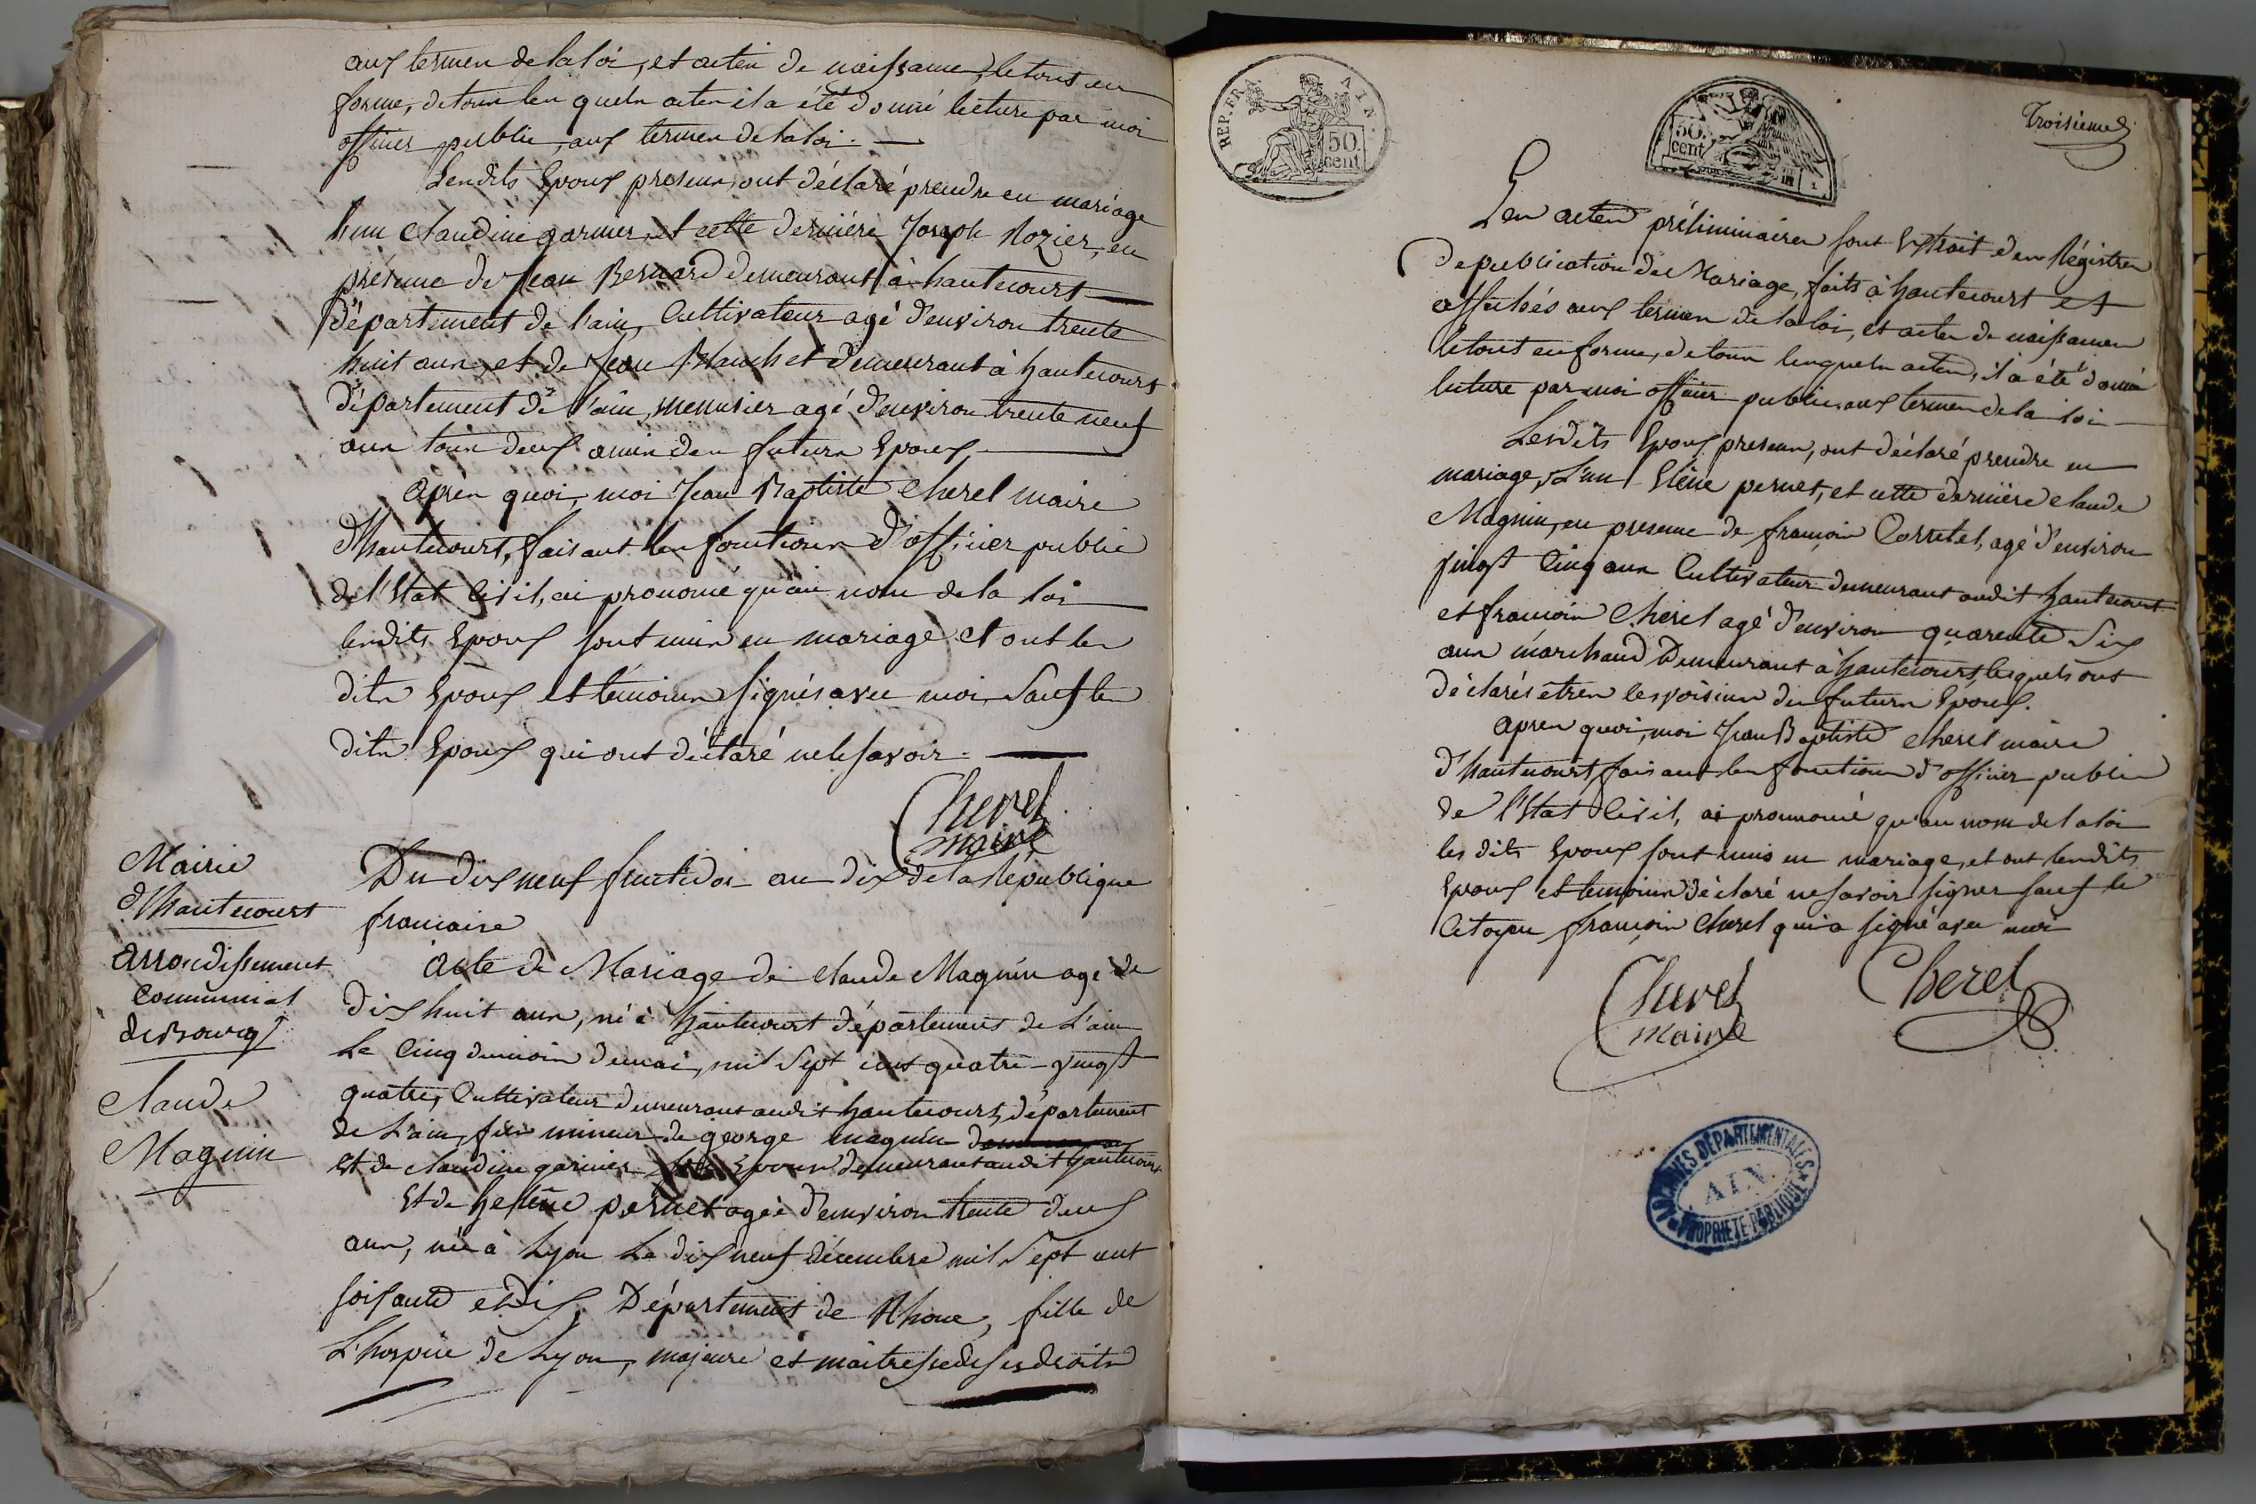 aux termes de la loi, et actes de naissance, le tout en
forme, de tous les quels actes il a été donné lecture par moi
officier public, aux termes de la loi. —
Lesdits Epoux presens, ont déclaré prendre en mariage
l'un Claudine garnier, et cette dernière Joseph Rozier, en
présence de Jean Bernard demeurant à hautecourt
département de l'ain, Cultivateur agé d'environ trente
huit ans, et de Jean Blanchet demeurant à hautecourt
département de l'ain, menusier agé d'environ trente neuf
ans tous deux amis des futurs Epoux
après quoi, moi Jean Baptiste Cherel maire
d'hautecourt, faisant les fonctions d'officier public
de l'Etat Civil, ai prononcé qu'au nom de la loi
lesdits Epoux sont unis en mariage et ont les
dits Epoux et témoins signés avec moi, Sauf les
dits Epoux qui ont déclaré ne le savoir.
Cherel
maire
Mairie
d'hautecourt
arrondissement
Communal
de Bourg
Claude
Magnin
Du dix neuf fructidor an dix de la République
francaise
Acte de Mariage de Claude Magnin agé de
dix huit ans, né à hautecourt département de L'ain
Le Cinq du mois de mai, mil Sept cent quatre-vingt
quatre, Cultivateur demeurant audit hautecourt, département
de L'ain, fils mineur de george magnin
Et de Claudine garnier Epoux demeurant audit hautecourt
Et de heleine pernet agée d'environ trente deux
ans, née à Lyon Le dix neuf décembre mil Sept cent
soixante et dix, Département de Rhone, fille de
L'hospice de Lyon, majeure et maitresse de ses droits
REP. FRA. AIN.
50.
cent
50.
cent
Troisieme
Les actes préliminaires sont Extrait des Régistres
de publication de Mariage, faits à hautecourt et
affichés aux termes de la loi, et actes de naissances
le tout en forme, de tous lesquels actes, il a été donné
lecture par moi officier public, aux termes de la loi —
Lesdits Epoux presens, ont déclaré prendre en
mariage, L'un Eléne pernet, et cette dernière Claude
Magnin, en presence de françois Corretel, agé d'environ
vingt Cinq ans Cultivateur demeurant audit hautecourt
et françois Cherel agé d'environ quarente Six
ans marchand Demeurant à hautecourt, lesquels ont
déclarés êtres les voisins des futurs Epoux.
après quoi, moi Jean Baptiste Cherel maire
d'hautecourt, faisant les fonctions d'officier public
de l'Etat Civil, ai prononcé qu'au nom de la loi
les dits Epoux sont unis en mariage, et ont lesdits
Epoux et temoins déclaré ne savoir signer sauf le
Citoyen françois Cherel qui a signé avec moi
Cherel
maire
Cherel
ARCHIVES DÉPARTEMENTALES
AIN
PROPRIÉTÉ PUBLIQUE